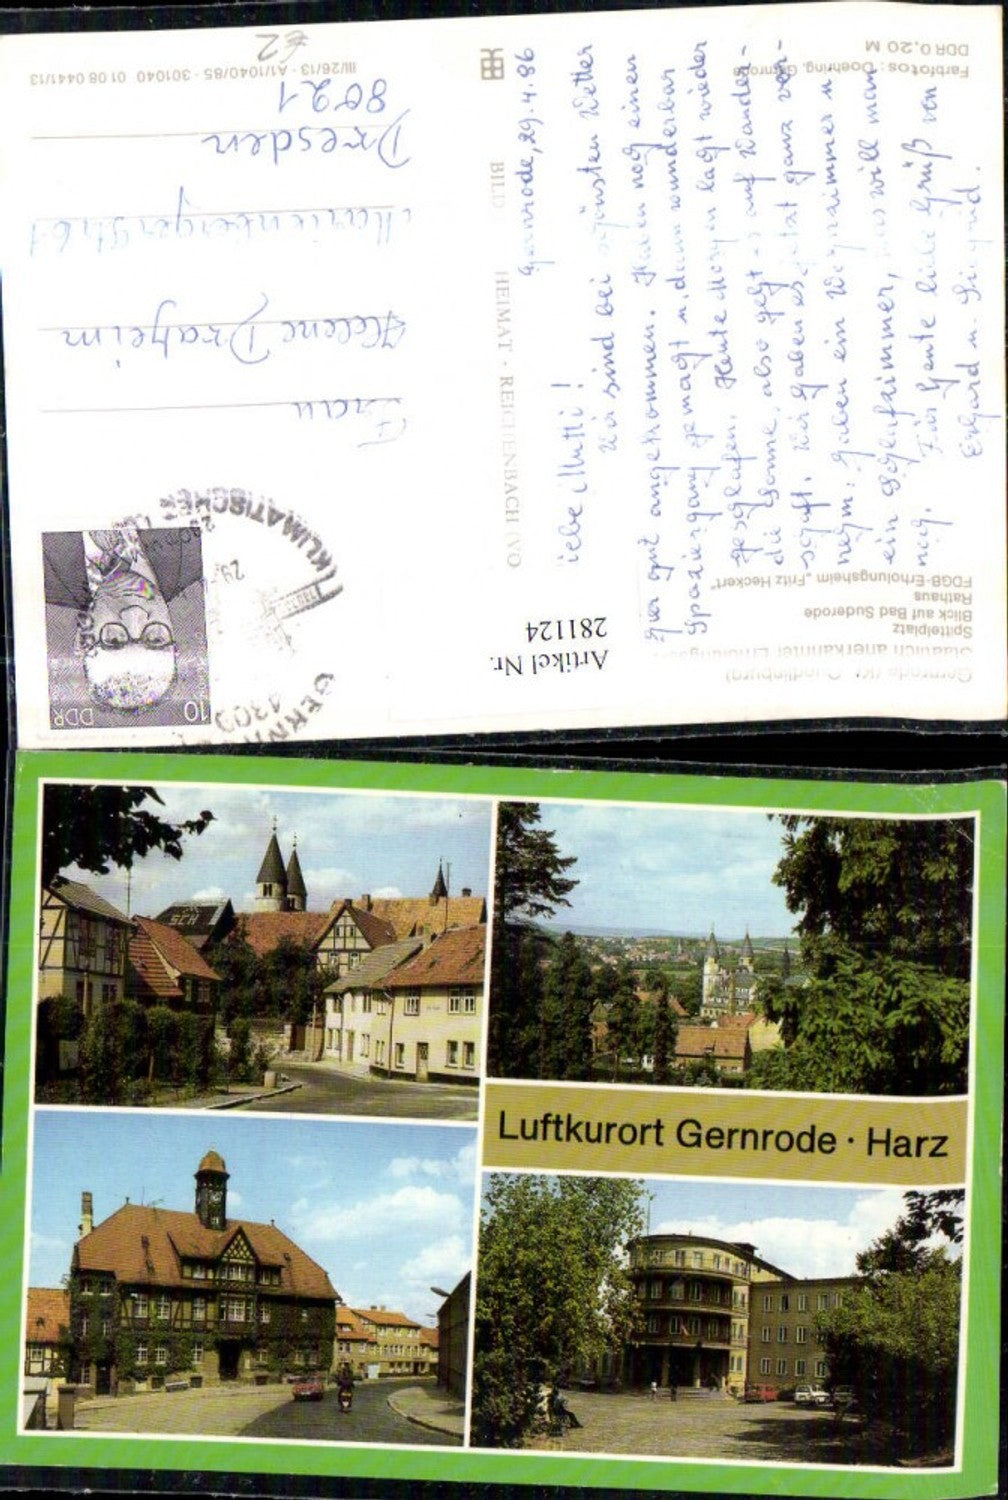 Gernrode (Kr. Quedlinburg)
Staatlich anerkannter Erholungsort
Spittelplatz
Blick auf Bad Suderode
Rathaus
FDGB-Erholungsheim „Fritz Heckert“
Gernrode, 29.4.86
Liebe Mutti!
Wir sind bei schönsten Wetter
hier gut angekommen. Haben noch einen
Spaziergang gemacht u. dann wunderbar
geschlafen. Heute Morgen lacht wieder
die Sonne, also geht es auf Wander-
schaft. Wir haben es jetzt ganz vor-
nehm: haben ein Wohnzimmer u
ein Schlafzimmer, was will man
noch. Für heute liebe Grüß von
Erhard u. Siegrid.
Farbfotos: Doehring, Gernrode
DDR 0,20 M
BILD HEIMAT · REICHENBACH (VO
III/26/13 · A1/1040/85 · 301040 01 08 0441/13
€2
Artikel Nr.
281124
10
DDR
GERNR
4305
KLIMATISCHER
29
Frau
Helene Draheim
Marienbergerstr. 61
Dresden
8021
Luftkurort Gernrode · Harz